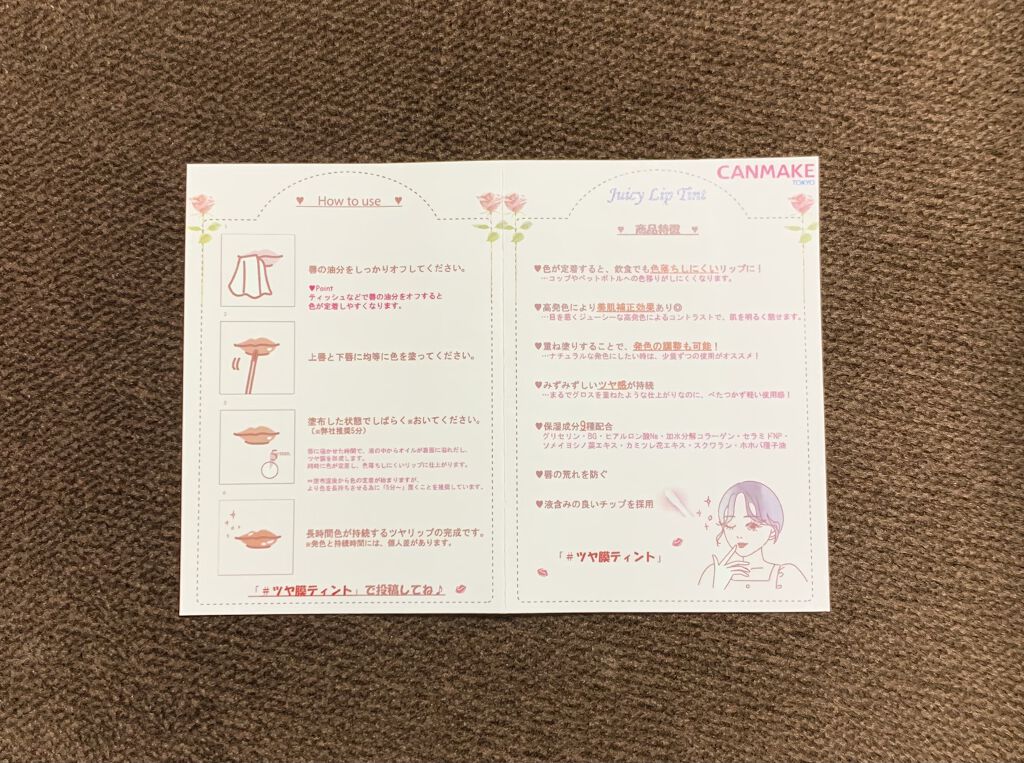 ♥ How to use ♥
1
唇の油分をしっかりオフしてください。
♥Point
ティッシュなどで唇の油分をオフすると
色が定着しやすくなります。
2
上唇と下唇に均等に色を塗ってください。
3
塗布した状態でしばらく※おいてください。
(※弊社推奨5分)
5
唇に溶かせた時間で、液の中からオイルが表面に溢れだし、
ツヤ膜を形成します。
同時に色が定着し、色落ちしにくいリップに仕上がります。
※塗布直後から色の定着が始まりますが、
より色を長持ちさせる為に「5分〜」置くことを推奨しています。
4
長時間色が持続するツヤリップの完成です。
※発色と持続時間には、個人差があります。
「#ツヤ膜ティント」で投稿してね♪
CANMAKE
TOKYO
Juicy Lip Tint
♥ 商品特徴 ♥
♥色が定着すると、飲食でも色落ちしにくいリップに!
…コップやペットボトルへの色移りがしにくくなります。
♥高発色により美肌補正効果あり◎
…目を惹くジューシーな高発色によるコントラストで、肌を明るく魅せます。
♥重ね塗りすることで、発色の調整も可能!
…ナチュラルな発色にしたい時は、少量ずつの使用がオススメ!
♥みずみずしいツヤ感が持続
…まるでグロスを重ねたような仕上がりなのに、べたつかず軽い使用感!
♥保湿成分9種配合
グリセリン・BG・ヒアルロン酸Na・加水分解コラーゲン・セラミドNP・
ソメイヨシノ葉エキス・カミツレ花エキス・スクワラン・ホホバ種子油
♥唇の荒れを防ぐ
♥液含みの良いチップを採用
「#ツヤ膜ティント」